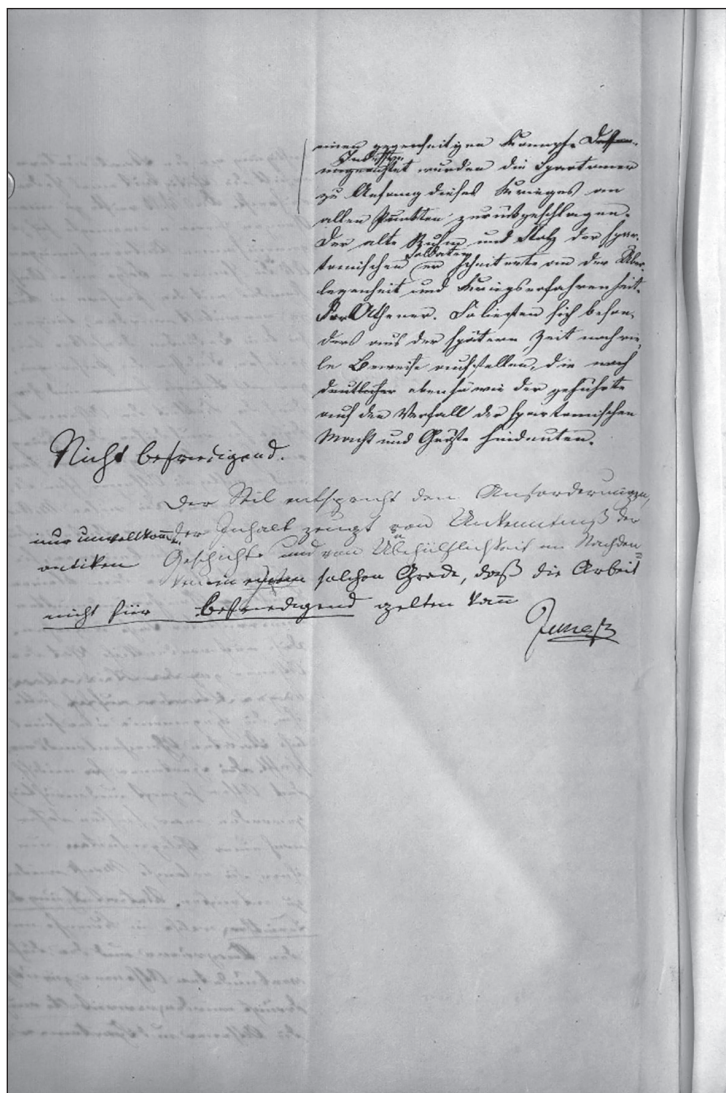 einen gegenseitigen Kampfe. Dessen-
ungeachtet wurden die Spartaner
zu Anfang dieses Krieges an
allen Punkten zurückgeschlagen.
Der alte Ruhm und Stolz der spar-
tanischen Soldaten er scheiterte an der Über-
legenheit und Kriegserfahrenheit
der Athener. So ließen sich beson-
ders aus der spätern Zeit noch vie-
le Beweise aufstellen, die noch
deutlicher ebenso wie der geführte
auf den Verfall der spartanischen
Macht und Größe hindeuten.
Nicht befriedigend.
Der Stil entspricht den Anforderungen
nur unvollkomm. der Inhalt zeugt von Unkenntniß der
antiken Geschichte und von Unbehülflichkeit im Nachden=
ken in einem solchen Grade, daß die Arbeit
nicht für befriedigend gelten kann